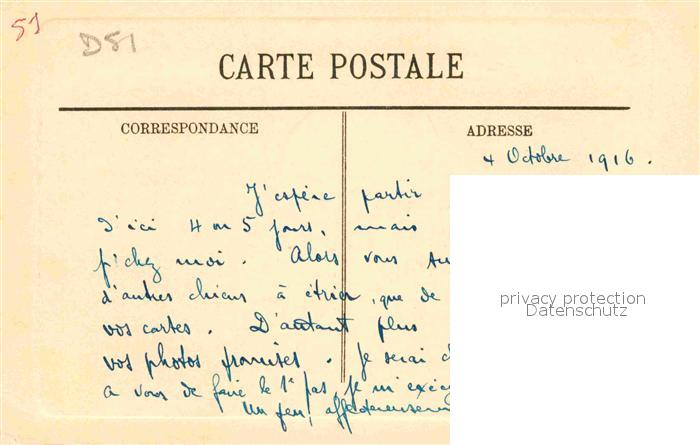 51
D51
CARTE POSTALE
CORRESPONDANCE
ADRESSE
4 Octobre 1916.
J'espère partir
d'ici 4 ou 5 jours, mais
fichez moi. Alors vous
d'autres chiens à étrier, que de
vos cartes. D'autant plus
vos photos promises. Je serai
a vous de faire le 1er pas, je m'
Un peu,
privacy protection
Datenschutz